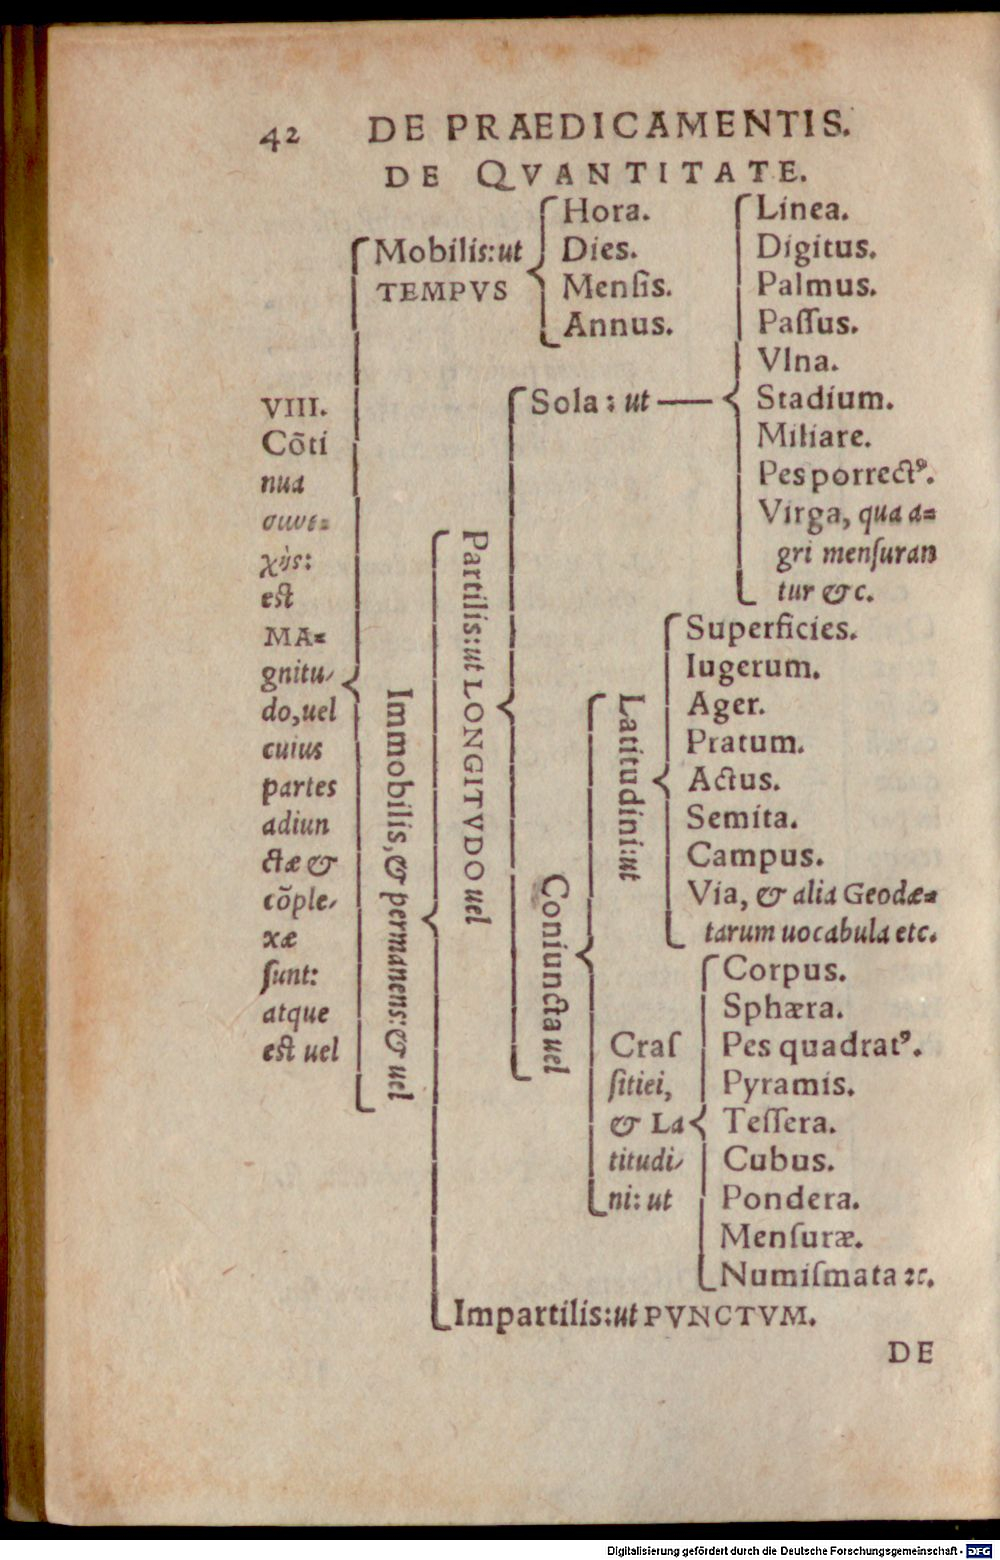 42 DE PRAEDICAMENTIS.
DE QVANTITATE.
VIII.
Cõti
nua
συνε=
χὴς:
est
MA=
gnitu/
do, uel
cuius
partes
adiun
ctæ &
cõple/
xæ
ſunt:
atque
est uel
Mobilis: ut
TEMPVS
Hora.
Dies.
Menſis.
Annus.
Immobilis, & permanens: & uel
Partilis: ut LONGITVDO uel
Sola: ut
Linea.
Digitus.
Palmus.
Paſſus.
Vlna.
Stadium.
Miliare.
Pes porrectꝰ.
Virga, qua a=
gri menſuran
tur &c.
Coniuncta uel
Latitudini: ut
Superficies.
Iugerum.
Ager.
Pratum.
Actus.
Semita.
Campus.
Via, & alia Geodæ=
tarum uocabula etc.
Craſ
ſitiei,
& La
titudi/
ni: ut
Corpus.
Sphæra.
Pes quadratꝰ.
Pyramis.
Teſſera.
Cubus.
Pondera.
Menſuræ.
Numiſmata ⁊c.
Impartilis: ut PVNCTVM.
DE
Digitalisierung gefördert durch die Deutsche Forschungsgemeinschaft - DFG